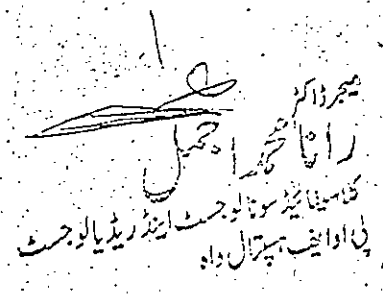 میجر ڈاکٹر
رانا محمد اجمیل
کلاسیفائیڈ سونالوجسٹ اینڈ ریڈیالوجسٹ
پی او ایف ہسپتال واہ